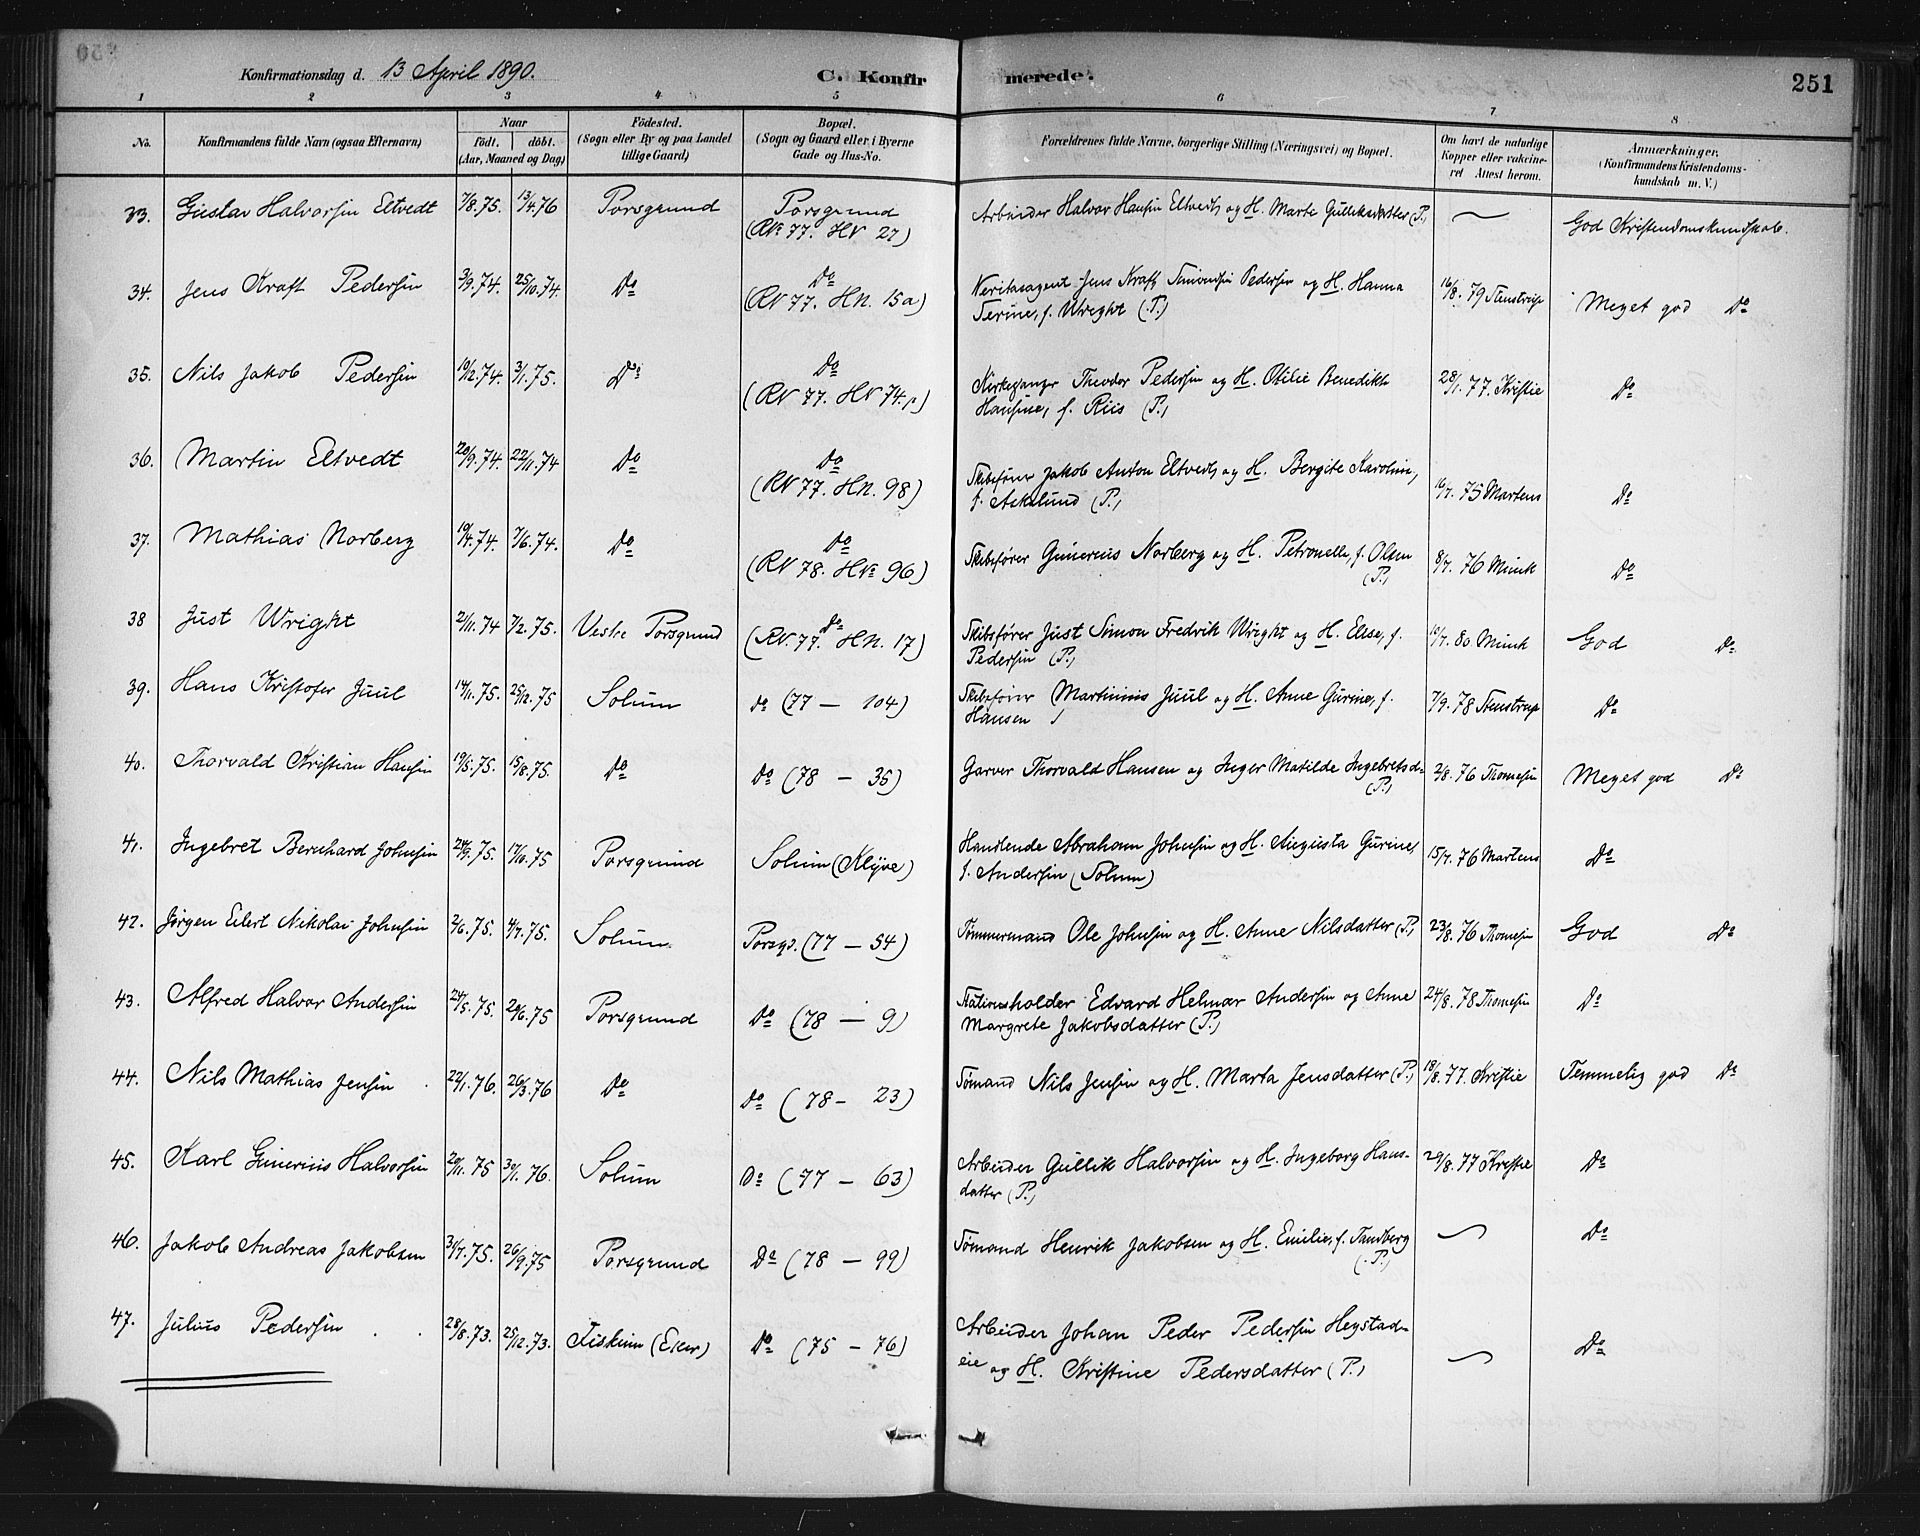 Konfirmationsdag d. 13 April 1890. C. Konfirmerede. 251
1 2 3 4 5 6 7 8
No. Konfirmandens fulde Navn (ogsaa Efternavn) Naar Födested. Bopæl. Forældrenes fulde Navne, borgerlige Stilling (Næringsvei) og Bopæl. Om havt de naturlige Anmærkninger.
födt. döbt. (Sogn eller By og paa Landet (Sogn og Gaard eller i Byerne Kopper eller vakcine- (Konfirmandens Kristendoms-
(Aar, Maaned og Dag) tillige Gaard) Gade og Hus-No. ret Attest herom. kundskab m. V.)
33. Gustav Halvorsen Eltvedt 7/8.75. 13/4.76 Porsgrund Porsgrund Arbeider Halvor Hansen Eltvedt, og H. Marte Gulliksdatter (P.)
(RN: 77. HN 27) God Kristendomskundskab.
34. Jens Kraft Pedersen 3/9.74. 25/10.74. Do Do Veritasagent Jens Kraft Simonsen Pedersen og H. Hanna 16/8.79 Stenstrup Meget god Do
(RN 77. HN. 15a) Serine, f. Wright (P.)
35. Nils Jakob Pedersen 19/12.74. 3/1.75. Do Do Kirkesanger Theodor Pedersen og H. Otilie Benedikte 28/1.77. Kristie Do
(RN 77. HN 74.) Hansine, f. Riis (P.)
36. Martin Eltvedt 20/9.74. 22/11.74 Do Do Skibsfører Jakob Anton Eltvedt, og H. Bergite Karoline, 16/7.75 Martens Do
(RN 77. HN. 98) f. Asklund (P.)
37. Mathias Norberg 19/4.74. 7/6.74. Do Do Skibsfører Gunerius Norberg og H. Petronelle, f. Olsen 8/7.76 Munk Do
(RN 78. HN: 96) (P.)
38 Just Wright 2/11.74 7/2.75. Vestre Porsgrund Do Skibsfører Just Simon Fredrik Wright og H. Elise, f. 19/7.80 Munk God Do
(RN. 77. HN. 17) Pedersen (P.)
39. Hans Kristofer Juul 14/11.75. 25/12.75 Solum Do (77 — 104) Skibsfører Martinius Juul og H. Anne Gurine, f. 7/9.78 Stenstrup Do
Hansen
40. Thorvald Kristian Hansen 19/5.75. 15/8.75. Do Do (78 — 35) Garver Thorvald Hansen og Inger Matilde Ingebretsd- 2/8.76 Thomesen Meget god Do
(P.)
41. Ingebret Bernhard Johnsen 24/9.75. 17/10.75 Porsgrund Solum (Klyve) Handlende Abraham Johnsen og H. Augusta Gurine, 15/7.76 Martens Do
f. Andersen (Solum)
42. Jørgen Eilert Nikolai Johnsen 2/6.75. 4/7.75. Solum. Porsgr. (77 — 54) Tømmermand Ole Johnsen og H. Anne Nilsdatter (P.) 23/8.76 Thomesen God Do
43. Alfred Halvor Andersen 24/5.75. 20/6.75 Porsgrund Do (78 — 9) Stationsholder Edvard Helmar Andersen og Anne 24/8.78 Thomesen Do
Margrete Jakobsdatter (P.)
44. Nils Mathias Jensen 22/1.76. 26/3.76 Do Do (78 — 23) Sømand Nils Jensen og H. Marta Jensdatter (P.) 18/8.77. Kristie Temmelig god Do
45. Karl Gunerius Halvorsen 20/11.75 30/1.76. Solum Do (77 — 63) Arbeider Gullik Halvorsen og H. Ingeborg Hans- 29/8.77 Kristie Do
datter (P.)
46. Jakob Andreas Jakobsen 31/7.75. 26/9.75 Porsgrund Do (78 — 99) Sømand Henrik Jakobsen og H. Emilie, f. Tandberg Do
(P.)
47. Julius Pedersen 28/8.73. 25/12.73. Fiskum (Eker) Do (75 — 76) Arbeider Johan Peder Pedersen Heystad- Do
eie og H. Kristine Pedersdatter (P.)